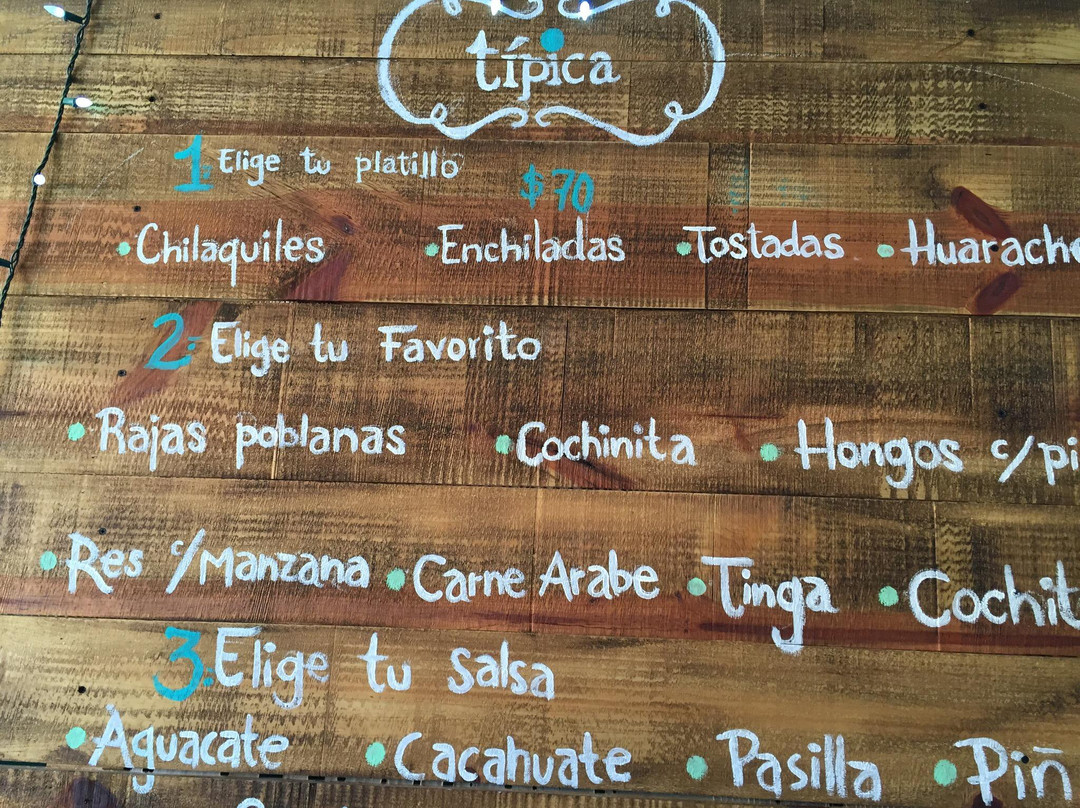 típica
1: Elige tu platillo
$70
Chilaquiles Enchiladas Tostadas Huarache
2: Elige tu Favorito
Rajas poblanas Cochinita Hongos c/pi
Res c/Manzana Carne Arabe Tinga Cochit
3. Elige tu Salsa
Aguacate Cacahuate Pasilla Piñ